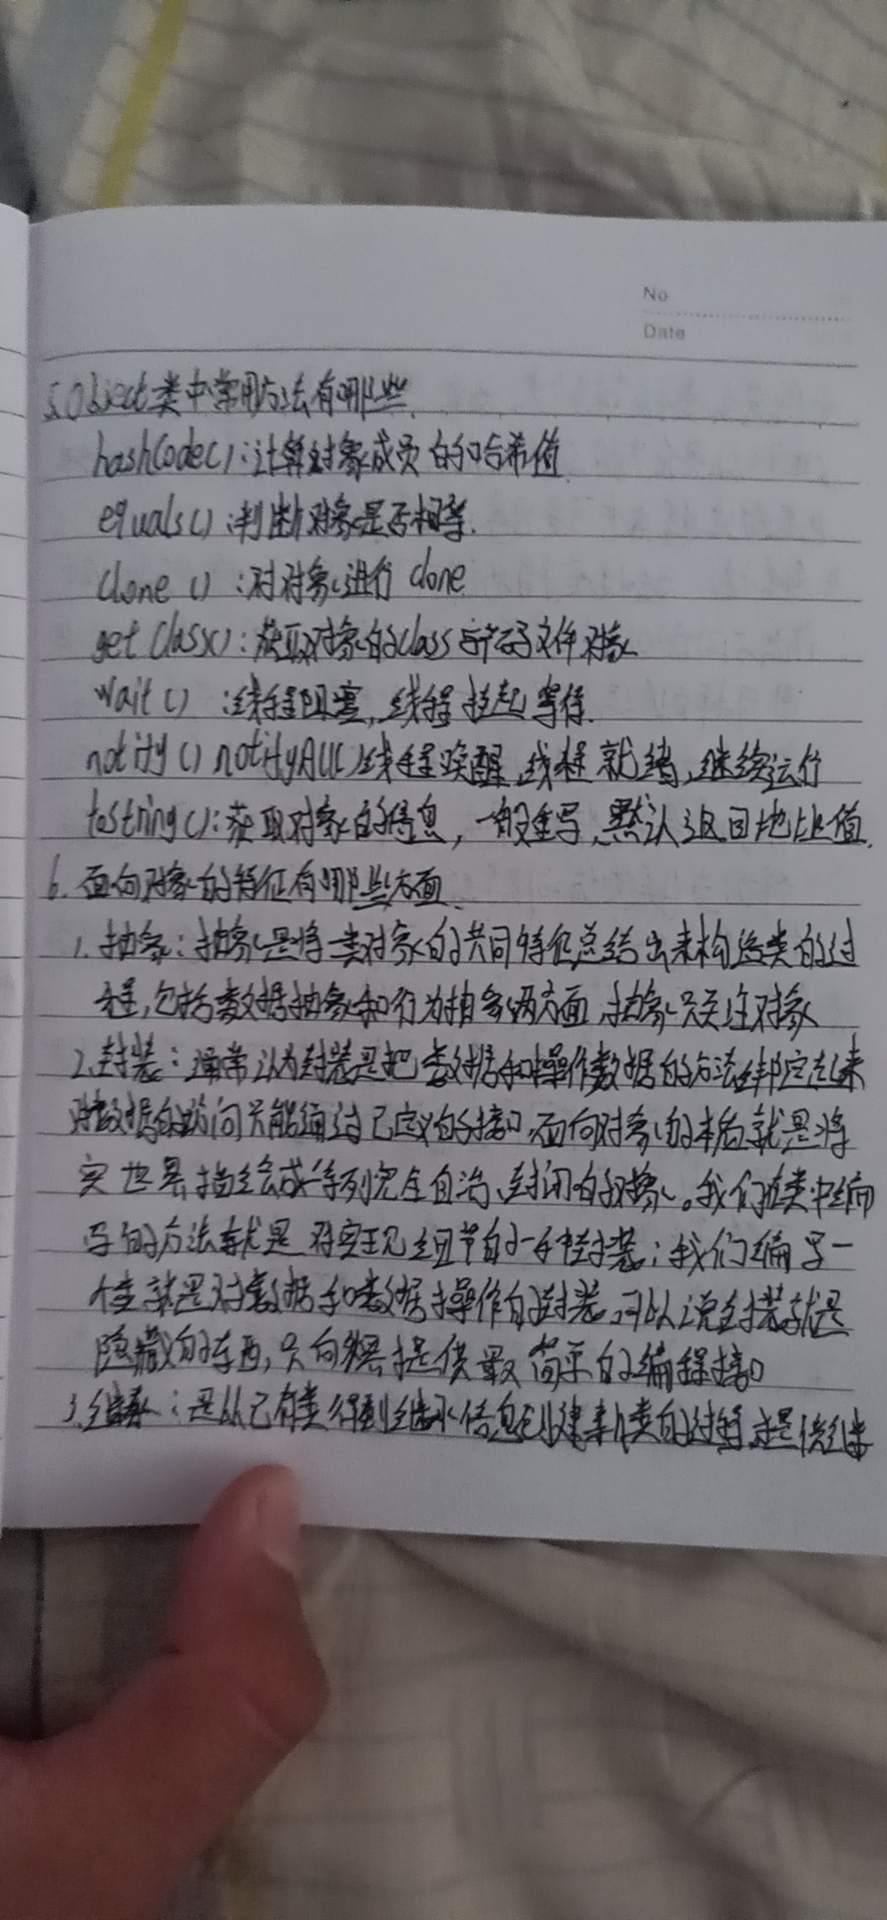 No
Date
5.Object类中常用方法有哪些
hashCode():计算对象成员的哈希值
equals():判断对象是否相等.
clone():对对象进行clone
getClass():获取对象的class字节码文件对象
wait():线程阻塞,线程挂起等待.
notify() notifyAll()线程唤醒,线程就绪,继续运行
toString():获取对象的信息,一般重写,默认返回地址值.
6.面向对象的特征有哪些方面.
1.抽象:抽象是将一类对象的共同特征总结出来构造类的过
程,包括数据抽象和行为抽象两方面,抽象只关注对象
2.封装:通常认为封装是把数据和操作数据的方法绑定起来
对数据的访问只能通过已定义的接口,面向对象的本质就是将
实世界描绘成一系列完全自治、封闭的对象。我们在类中编
写的方法就是对实现细节的一种封装;我们编写一
个类就是对数据和数据操作的封装,可以说封装就是
隐藏的东西,只向界提供最简单的编程接口
3.继承:是从已有类得到继承信息创建新类的过程,提供继